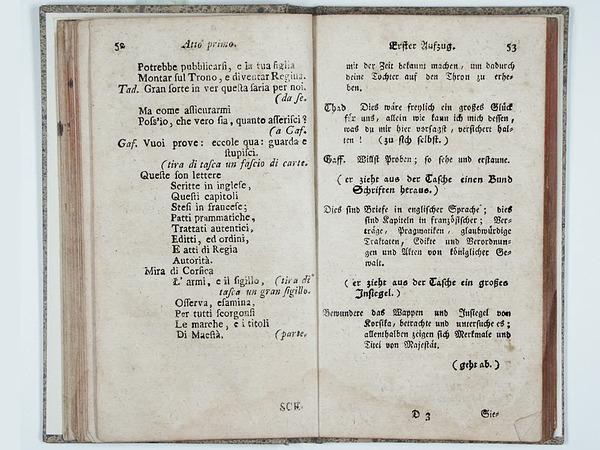 52 Atto primo.
Potrebbe pubblicarſi, e la tua figlia
Montar ſul Trono, e diventar Regina.
Tad. Gran ſorte in ver queſta ſaria per noi.
(da ſe.
Ma come aſſicurarmi
Poſs'io, che vero ſia, quanto aſſeriſci?
(a Gaf.
Gaf. Vuoi prove: eccole qua: guarda e
ſtupiſci.
(tira di taſca un faſcio di carte.
Queſte ſon lettere
Scritte in ingleſe,
Queſti capitoli
Steſi in franceſe;
Patti prammatiche,
Trattati autentici,
Editti, ed ordini,
E atti di Regia
Autorità.
Mira di Corſica
L' armi, e il ſigillo, (tira di
taſca un gran ſigillo.
Oſſerva, eſamina,
Per tutti ſcorgonſi
Le marche, e i titoli
Di Maeſtà. (parte.
SCE-
Erſter Aufzug. 53
mit der Zeit bekannt machen, um dadurch
deine Tochter auf den Thron zu erhe-
ben.
Thad. Dies wäre freylich ein großes Glück
für uns, allein wie kann ich mich deſſen,
was du mir hier vorſagſt, verſichert hal-
ten! (zu ſich ſelbſt.)
Gaff. Willſt Proben; ſo ſehe und erſtaune.
(er zieht aus der Taſche einen Bund
Schriften heraus.)
Dies ſind Briefe in engliſcher Sprache; dies
ſind Kapiteln in franzöſiſcher; Ver-
träge, Pragmatiken, glaubwürdige
Traktaten, Edikte und Verordnun-
gen und Akten von königlicher Ge-
walt.
(er zieht aus der Taſche ein großes
Inſiegel.)
Bewundere das Wappen und Inſiegel von
Korſika, betrachte und unterſuche es;
allenthalben zeigen ſich Merkmale und
Titel von Majeſtät.
(geht ab.)
D 3 Sie-